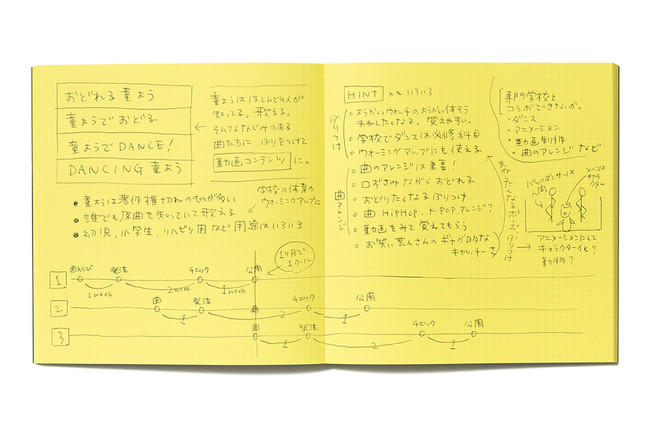 おどれる童よう
童ようでおどる
童ようでDANCE!
DANCING童よう
童ようはほとんどの人が
知ってる。歌える。
そんななじみのある
曲たちに ふりをつけて
動画コンテンツに。
● 童ようは著作権切れのものが多い
● 誰でも原曲を知っていて歌える
● 幼児、小学生、リハビリ用など用途はいろいろ
学校の体育の
ウォーミングアップに
1ヶ月で
1クール
1
曲えらび
発注
チェック
公開
1week
2week
1week
2
曲
発注
チェック
公開
1
2
1
3
曲
発注
チェック
公開
1
2
1
HINT
いろいろ
ふりつけ
ようかいウォッチのようかい体そう
まねしたくなる。覚えやすい。
学校でダンスは必修科目
ウォーミングアップにも使える
曲アレンジ
曲のアレンジは重要!
口ずさみながらおどれる
おどりたくなるふりつけ
曲 HIPHOP、K-POPアレンジ?
動画をみて覚えてもらう
お笑い芸人さんのギャグ的な
キャッチーさ
まねしたくなるポーズ、ふりつけ
専門学校と
コラボできないか。
・ダンス
・アニメーション
・動画制作
・曲のアレンジ など
メイン
キャラクター
人間
アニメーションにして
キャラクター化?
動物?